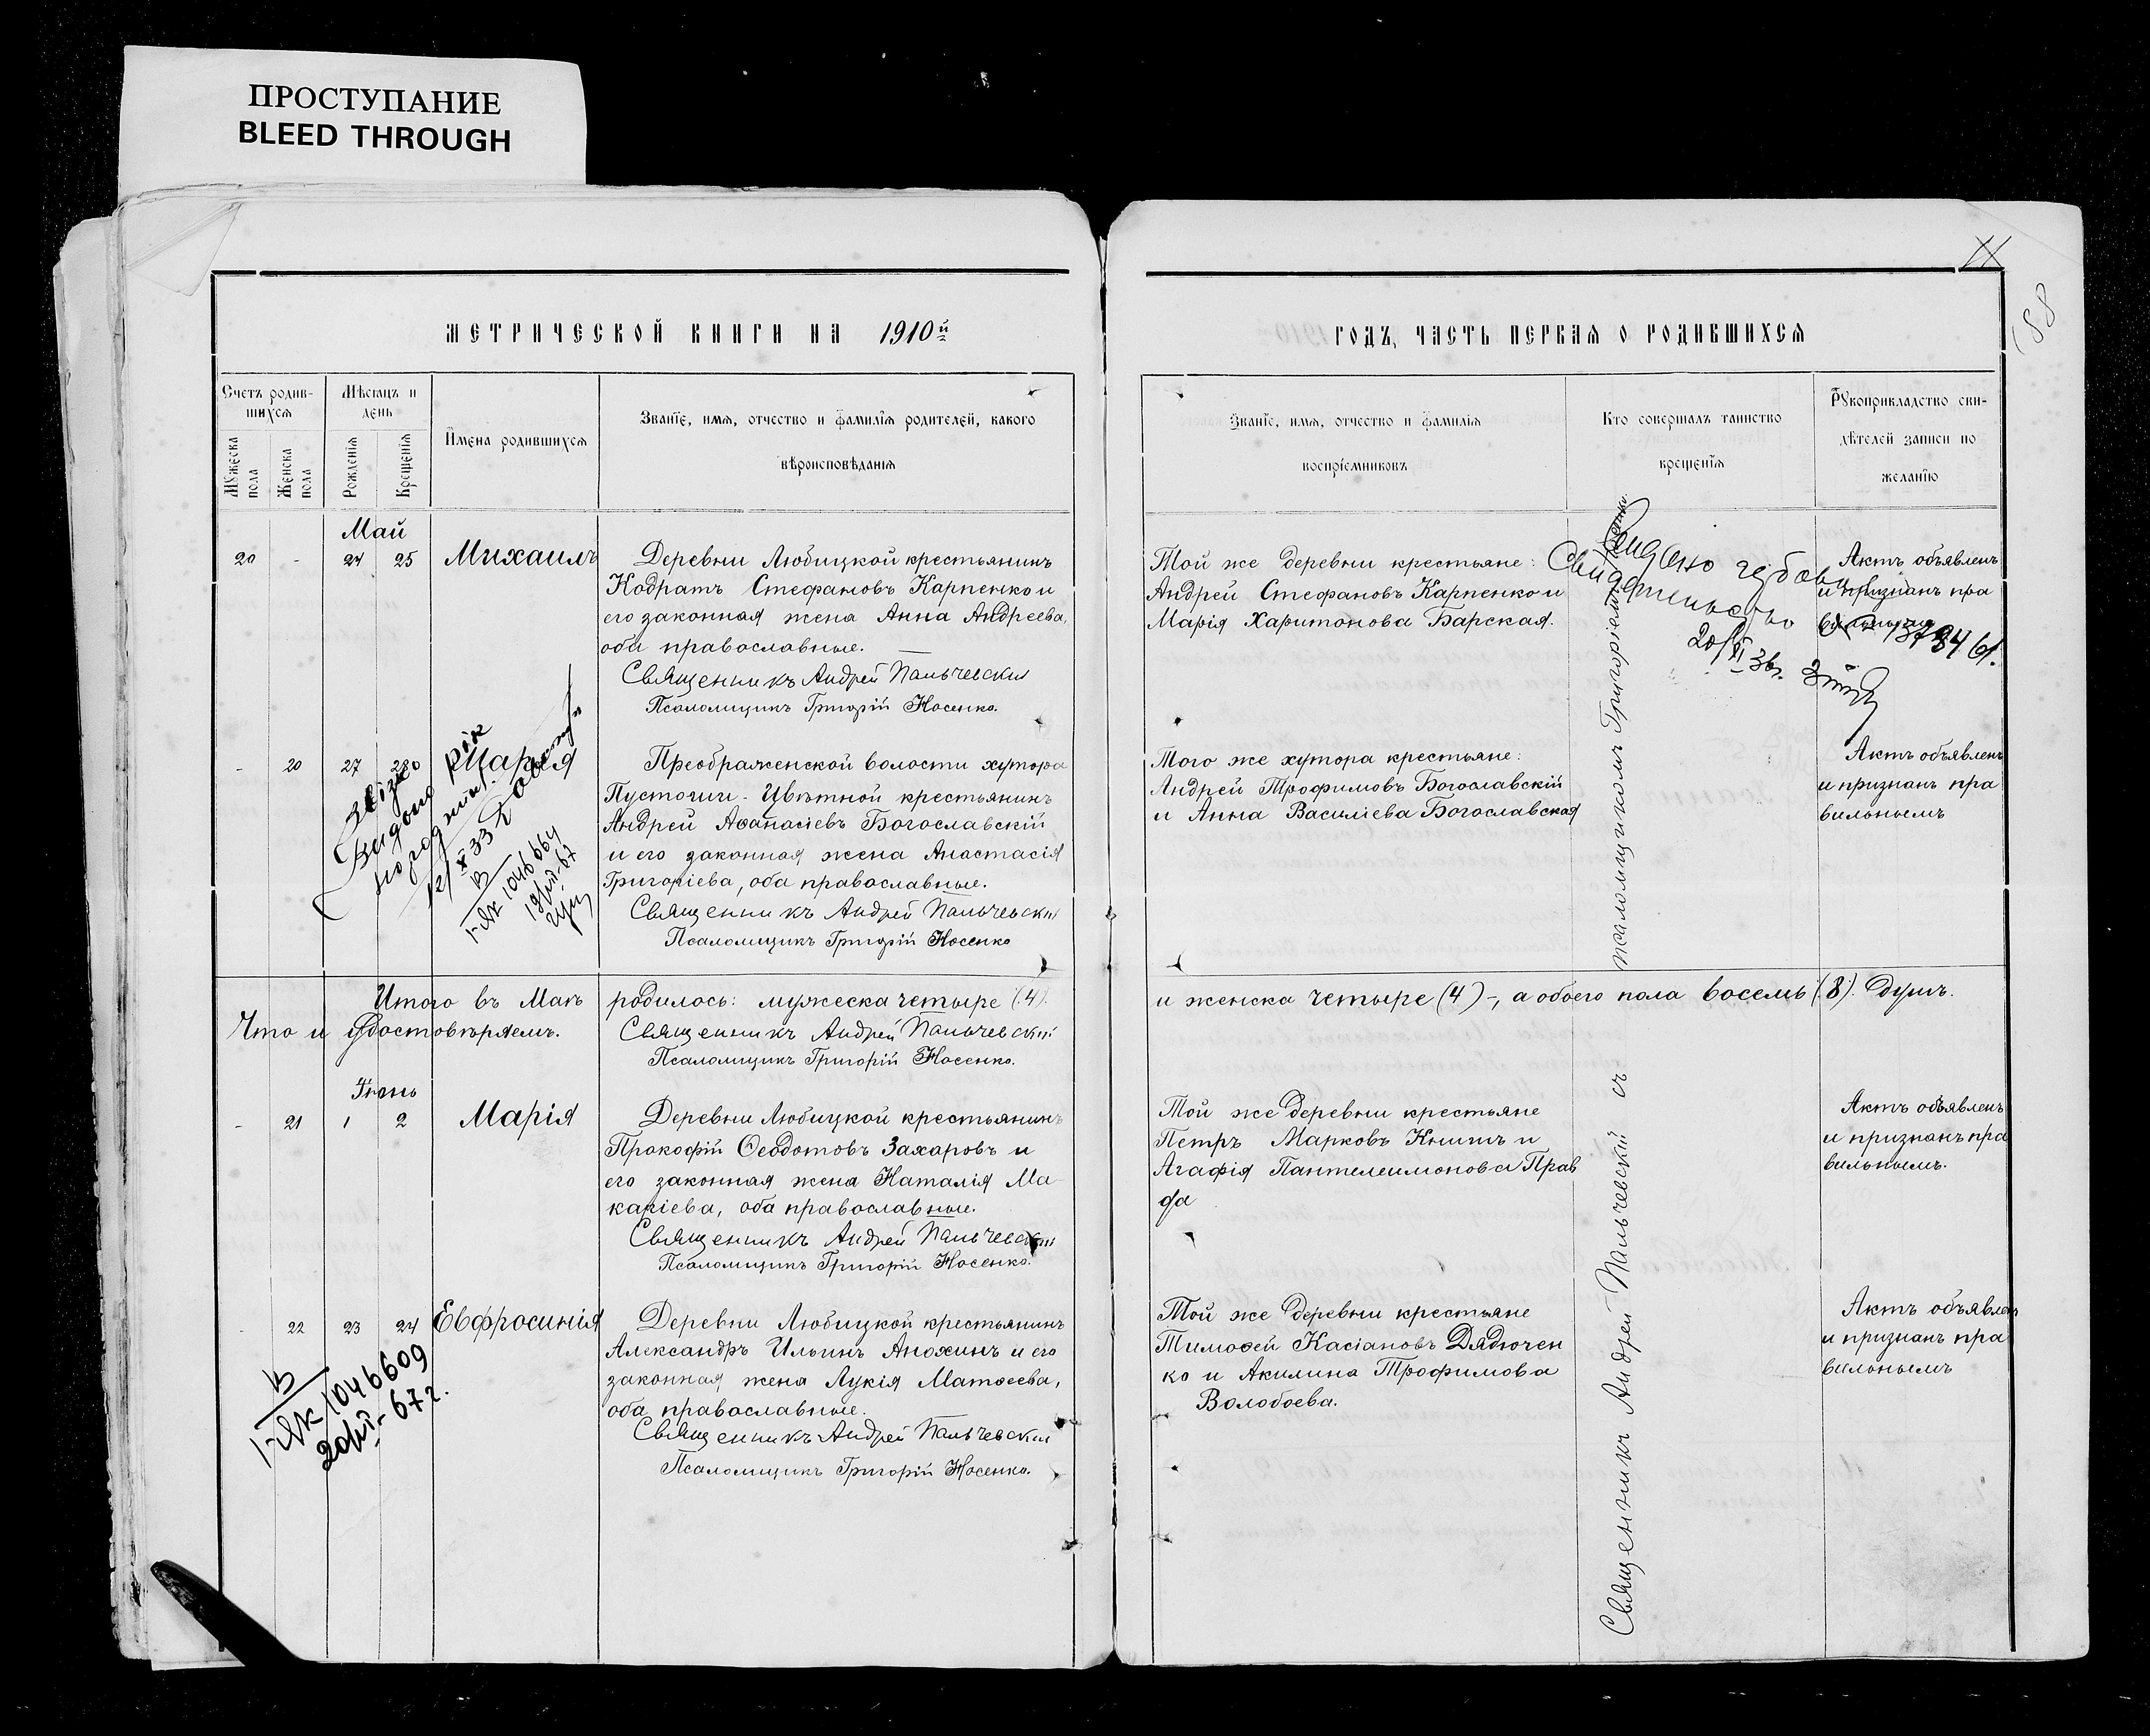 ПРОСТУПАНИЕ
BLEED THROUGH
МЕТРИЧЕСКОЙ КНИГИ НА 1910й
Счетъ родив-
шихся
Мѣсяцъ и
день
Имена родившихся
Званіе, имя, отчество и фамилія родителей, какого
вѣроисповѣданія
Мужеска
пола
Женска
пола
Рожденія
Крещенія
Май
20 - 24 25 Михаилъ
Деревни Любицкой крестьянинъ
Кодратъ Стефановъ Карпенко и
его законная жена Анна Андреева,
оба православные.
Священникъ Андрей Пальчевскій
Псаломщикъ Григорій Носенко.
- 20 27 28 Марія
Преображенской волости хутора
Пустоши-Цвѣтной крестьянинъ
Андрей Аѳанасіевъ Богославскій
и его законная жена Анастасія
Григоріева, оба православные.
Священникъ Андрей Пальчевскій
Псаломщикъ Григорій Носенко
Видано
12/X 33
1046664
Итого въ Маѣ родилось: мужеска четыре (4)
Что и удостовѣряемъ.
Священникъ Андрей Пальчевскій
Псаломщикъ Григорій Носенко.
Іюнь
- 21 1 2 Марія
Деревни Любицкой крестьянинъ
Прокофій Ѳеодотовъ Захаровъ и
его законная жена Наталія Ма-
каріева, оба православные.
Священникъ Андрей Пальчевскій
Псаломщикъ Григорій Носенко.
- 22 23 24 Евфросинія
Деревни Любицкой крестьянинъ
Александръ Ильинъ Анохинъ и его
законная жена Лукія Матѳеева,
оба православные.
Священникъ Андрей Пальчевскій
Псаломщикъ Григорій Носенко.
1046609
67г.
188
ГОДЪ, ЧАСТЬ ПЕРВАЯ О РОДИВШИХСЯ
Званіе, имя, отчество и фамилія
воспріемниковъ
Кто совершалъ таинство
крещенія
Рукоприкладство сви-
дѣтелей записи по
желанію
Той же деревни крестьяне:
Андрей Стефановъ Карпенко и
Марія Харитонова Барская.
Актъ объявленъ
и признанъ пра
вильнымъ
Того же хутора крестьяне:
Андрей Трофимовъ Богославскій
и Анна Василіева Богославская
Актъ объявленъ
и признанъ пра
вильнымъ
и женска четыре (4)-, а обоего пола восемь (8). душъ.
Той же деревни крестьяне
Петръ Марковъ Книшъ и
Агафія Пантелеимонова Прав
да
Актъ объявленъ
и признанъ пра
вильнымъ.
Той же деревни крестьяне
Тимоѳей Касіановъ Дядючен
ко и Акилина Трофимова
Волобоева.
Актъ объявленъ
и признанъ пра
вильнымъ
Священникъ Андрей Пальчевскій съ псаломщикомъ Григоріемъ Носенко.